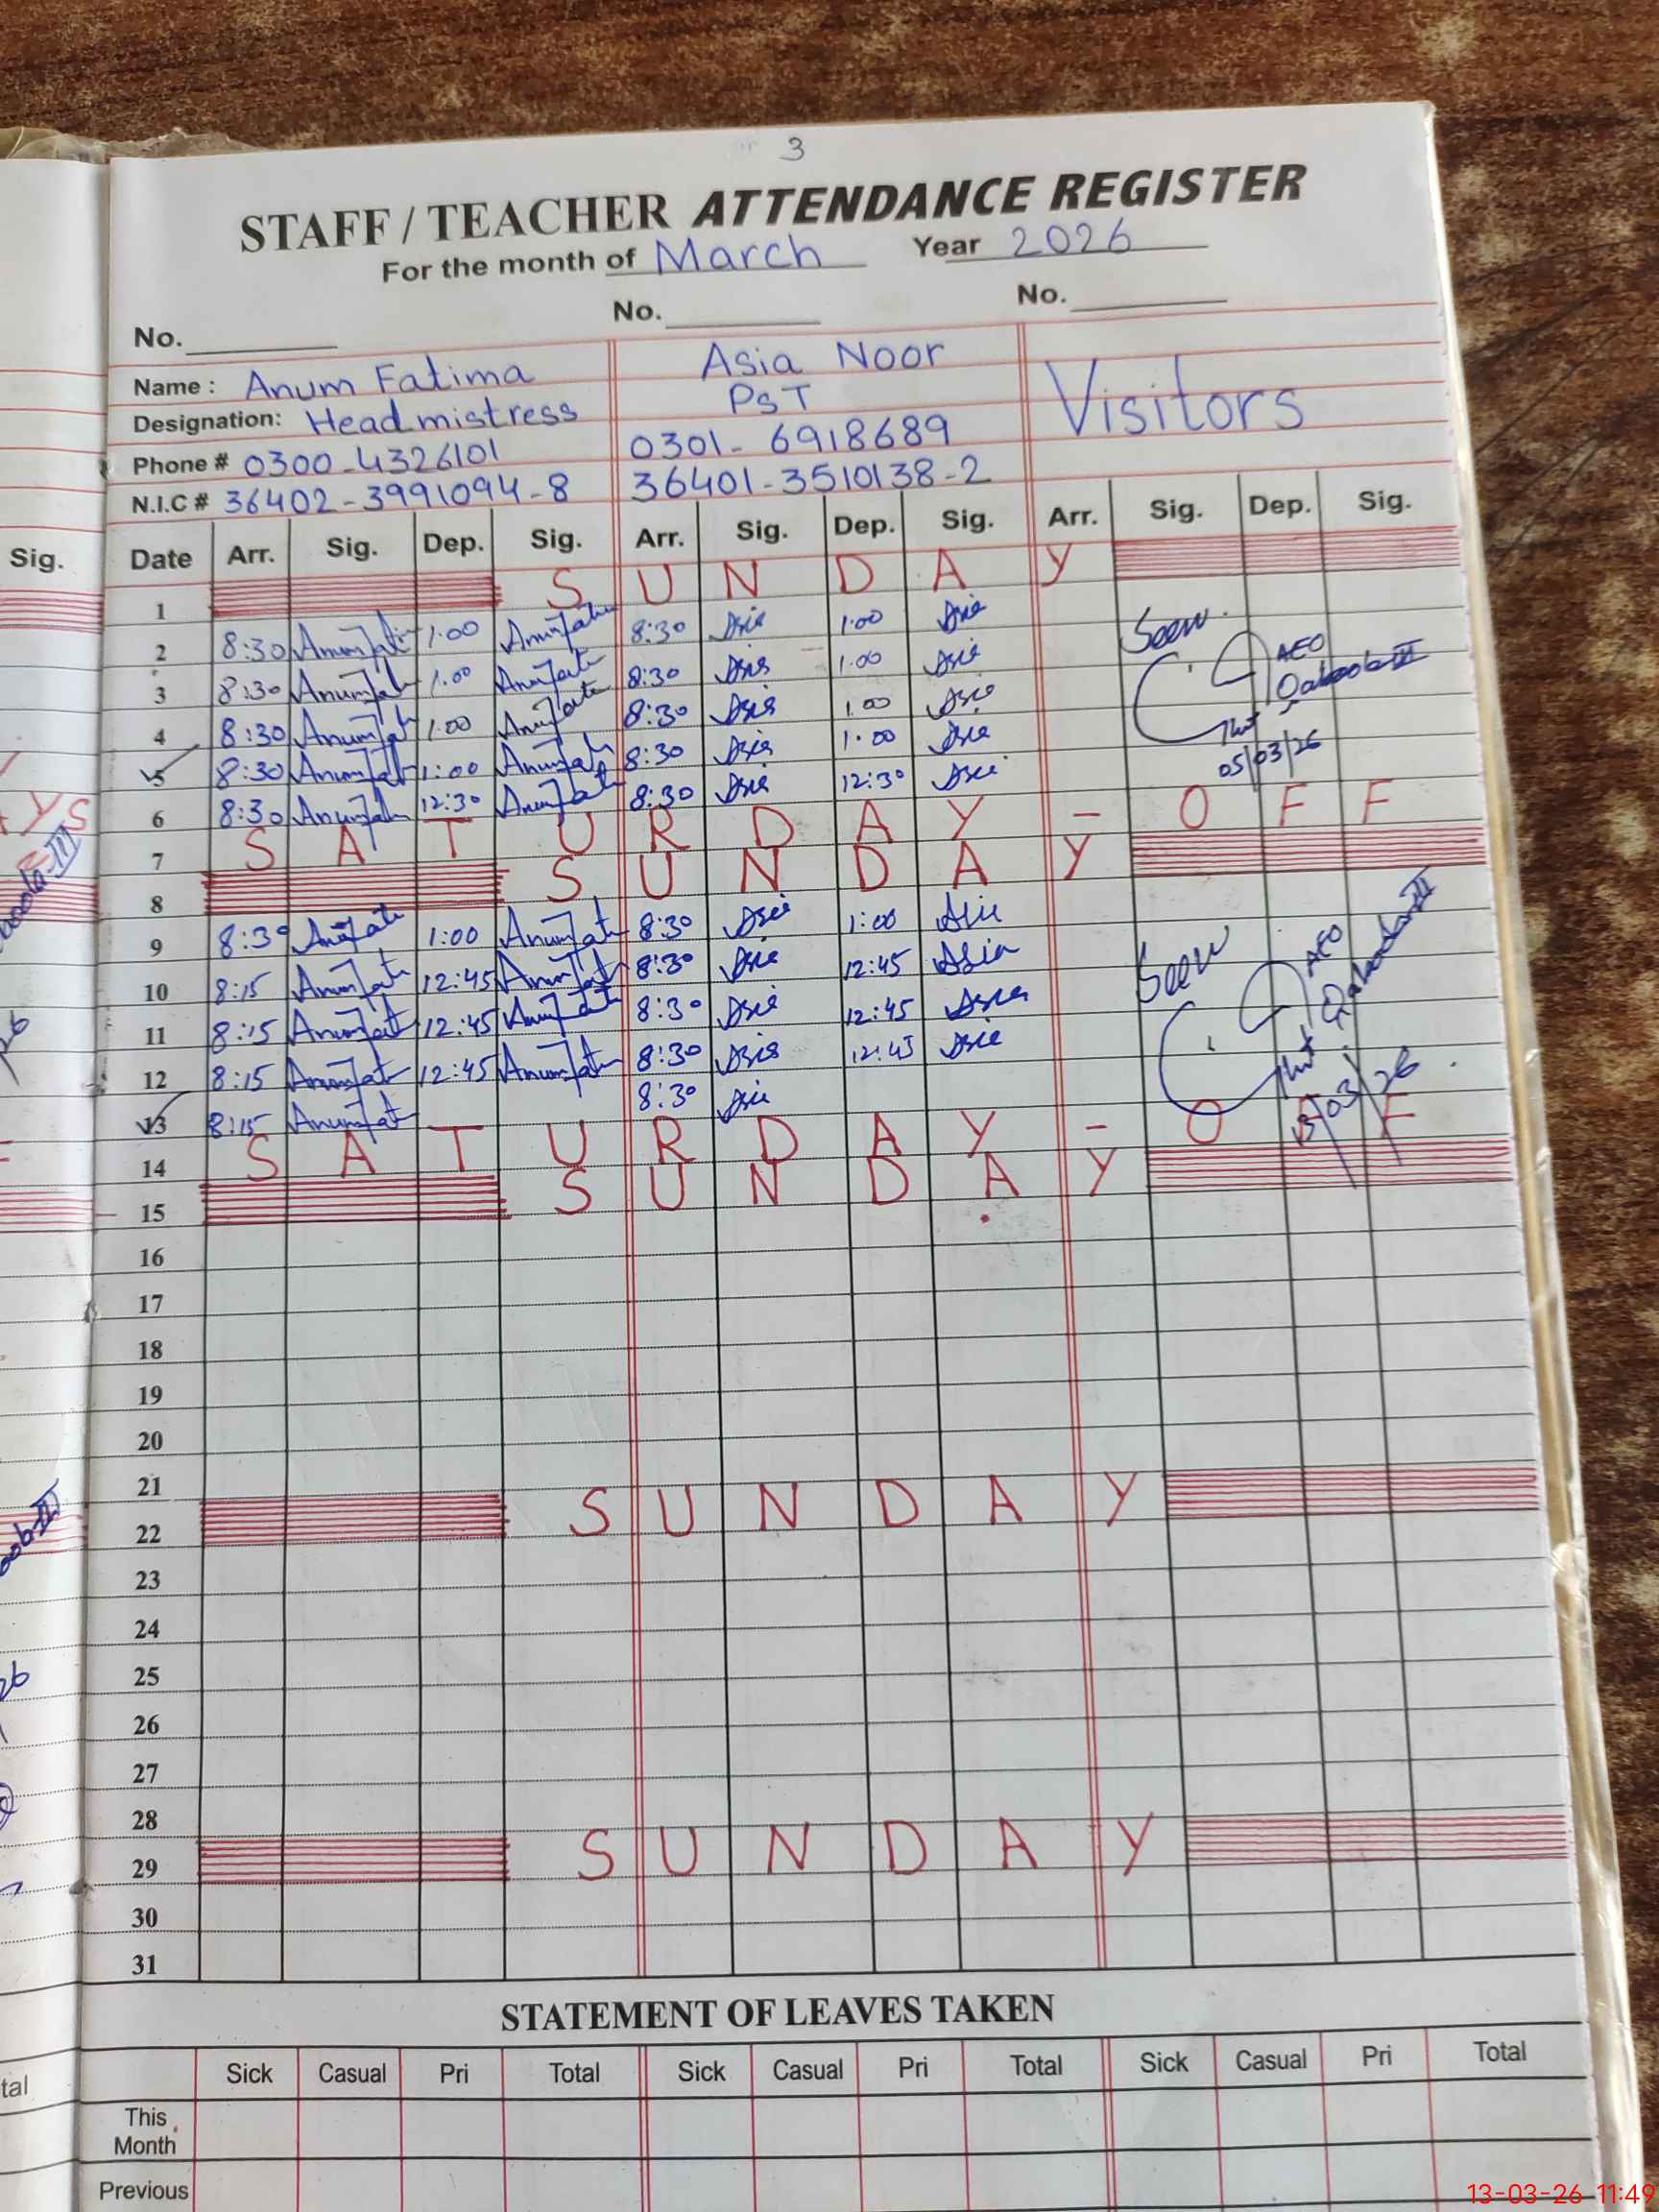 3
STAFF / TEACHER ATTENDANCE REGISTER
For the month of March Year 2026
No. No. No.
Name : Anum Fatima Asia Noor Visitors
Designation: Headmistress PST
Phone # 0300-4326101 0301-6918689
N.I.C # 36402-3991094-8 36401-3510138-2
Sig. Date Arr. Sig. Dep. Sig. Arr. Sig. Dep. Sig. Arr. Sig. Dep. Sig.
1 SUNDAY
2 8:30 1:00 8:30 Asia 1:00 Asia Seen
3 8:30 1:00 8:30 Asia 1:00 Asia AEO
4 8:30 1:00 8:30 Asia 1:00 Asia
5 8:30 1:00 8:30 Asia 1:00 Asia 05/03/26
6 8:30 12:30 8:30 Asia 12:30 Asia
7 SATURDAY - OFF
8 SUNDAY
9 8:30 1:00 8:30 Asia 1:00 Asia
10 8:15 12:45 8:30 Asia 12:45 Asia Seen AEO
11 8:15 12:45 8:30 Asia 12:45 Asia
12 8:15 12:45 8:30 Asia 12:45 Asia
13 8:15 8:30 Asia 13/03/26
14 SATURDAY - OFF
15 SUNDAY
16
17
18
19
20
21
22 SUNDAY
23
24
25
26
27
28
29 SUNDAY
30
31
STATEMENT OF LEAVES TAKEN
Sick Casual Pri Total Sick Casual Pri Total Sick Casual Pri Total
This Month
Previous
13-03-26 11:49